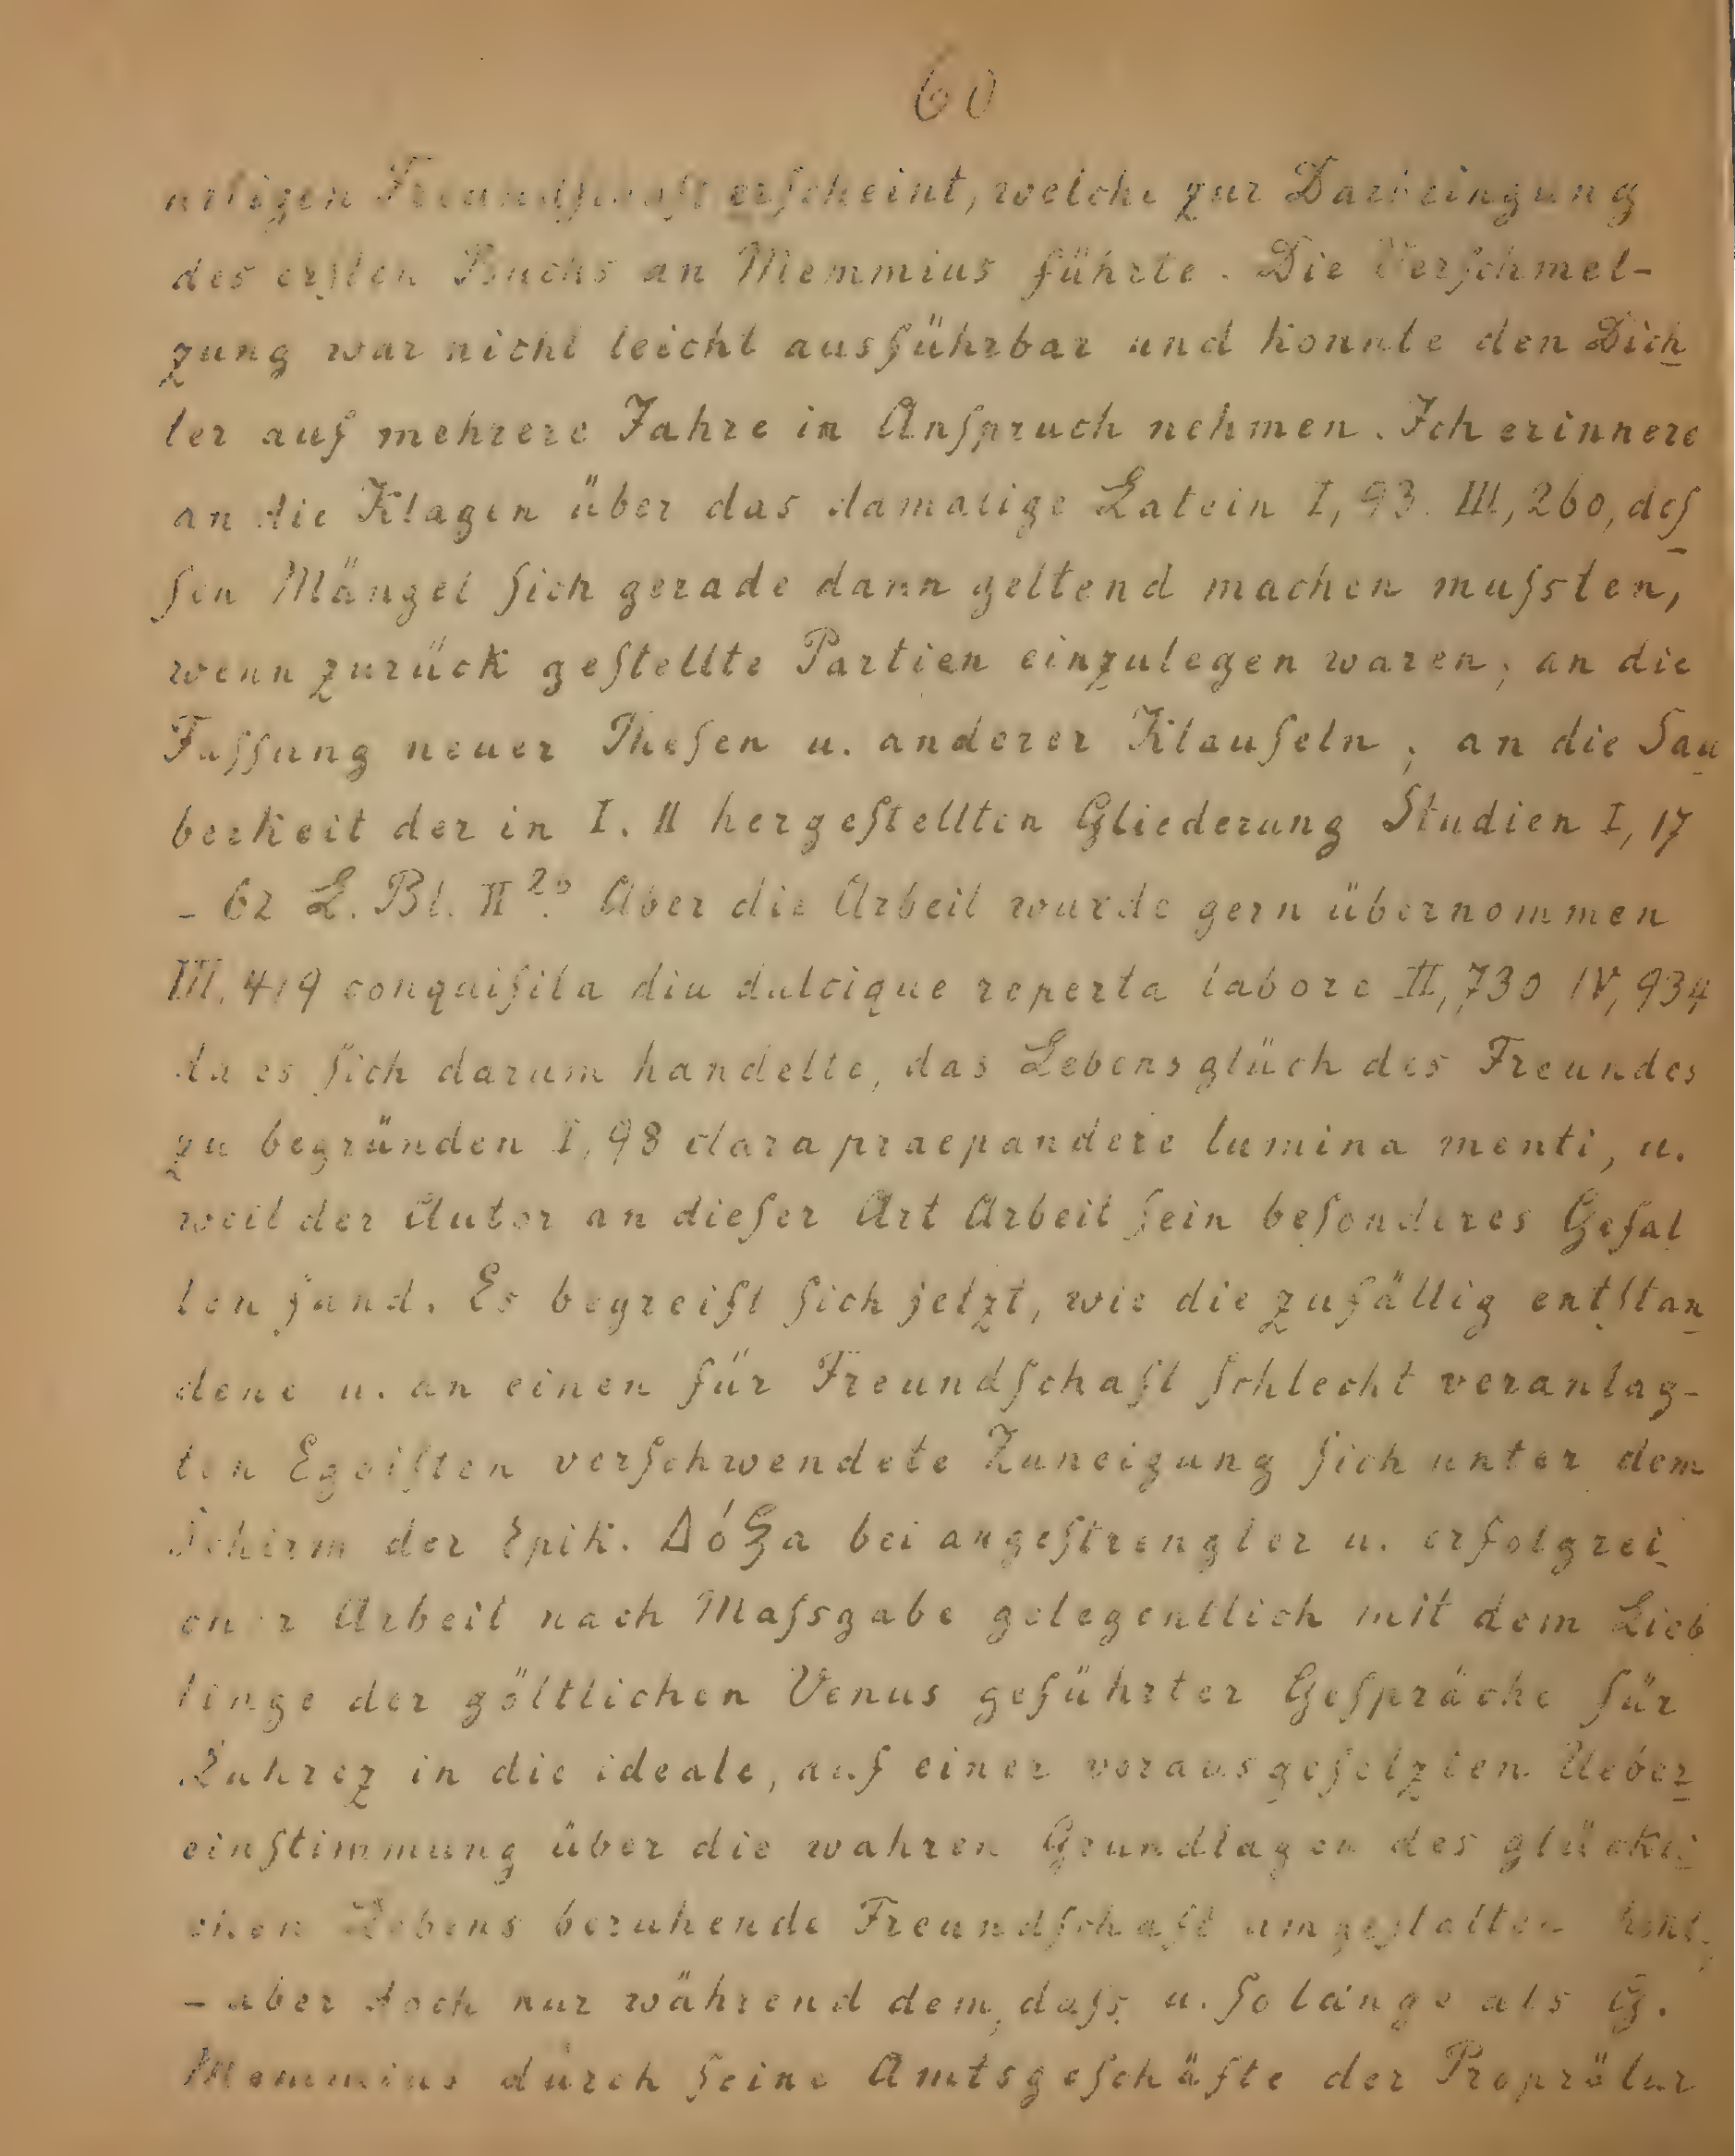 60
erſcheint, welche zur Darbringung
des erſten Buchs an Memmius führte. Die Verſchmel-
zung war nicht leicht ausführbar und konnte den Dich
ter auf mehrere Jahre in Anſpruch nehmen. Ich erinnere
an die Klagen über das damalige Latein I, 93. III, 260, deſ
ſen Mängel ſich gerade dann geltend machen muſsten,
wenn zurück geſtellte Partien einzulegen waren; an die
Faſſung neuer Theſen u. anderer Klauſeln; an die Sau
berkeit der in I. II hergeſtellten Gliederung Studien I, 17
- 62 L. Bl. II Aber die Arbeit wurde gern übernommen
III, 419 conquiſita diu dulcique reperta labore II, 730 IV, 934
da es ſich darum handelte, das Lebensglück des Freundes
zu begründen I, 98 clara praepandere lumina menti, u.
weil der Autor an dieſer Art Arbeit ſein beſonderes Gefal
len fand. Es begreift ſich jetzt, wie die zufällig entſtan
dene u. an einen für Freundſchaft ſchlecht veranlag-
ten Egoiſten verſchwendete Zuneigung ſich unter dem
Schirm der Epik. Δόξα bei angeſtrengter u. erfolgrei
cher Arbeit nach Maſsgabe gelegentlich mit dem Lieb
linge der göttlichen Venus geführter Geſpräche für
Lukrez in die ideale, auf einer vorausgeſetzten Ueber
einſtimmung über die wahren Grundlagen des glückli
chen Lebens beruhende Freundſchaft umgeſtalten
- aber doch nur während dem, daſs u. ſo lange als G.
Memmius durch ſeine Amtsgeſchäfte der Proprätur